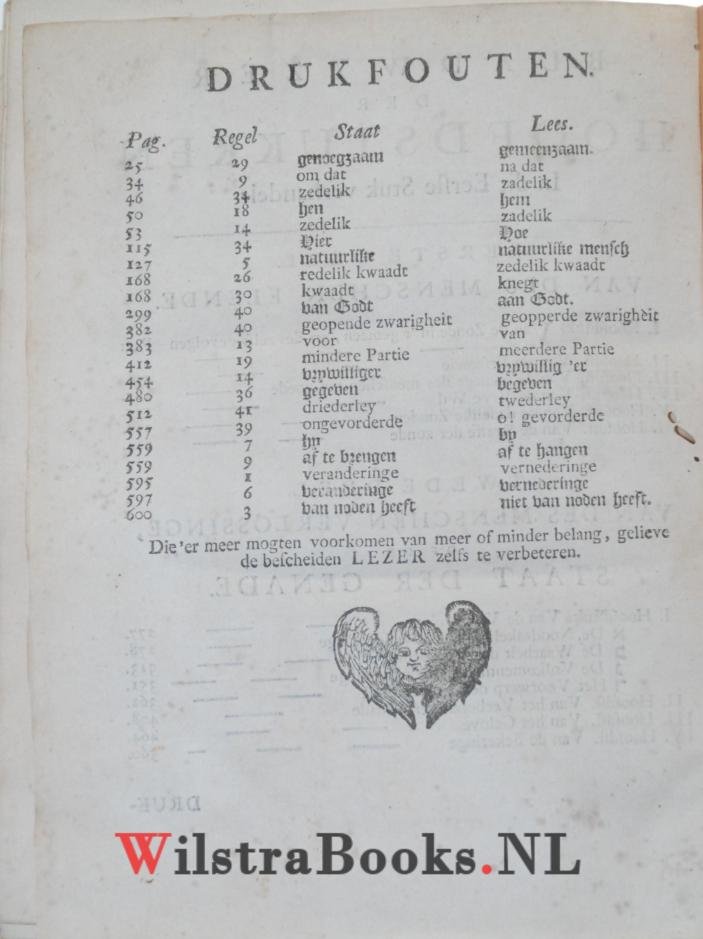 DRUKFOUTEN.
Pag. Regel Staat Lees.
25 29 genoegzaam gemeenzaam.
34 9 om dat na dat
46 34 zedelik zadelik
50 18 hen hem
53 14 zedelik zadelik
115 34 Hier Hoe
127 5 natuurlike natuurlike mensch
168 26 redelik kwaadt zedelik kwaadt
168 30 kwaadt knegt
299 40 van Godt aan Godt.
382 40 geopende zwarigheit geopperde zwarigheit
383 13 voor van
412 19 mindere Partie meerdere Partie
454 14 vrywilliger vrywillig 'er
480 36 gegeven begeven
512 41 driederley twederley
557 39 ongevorderde o! gevorderde
559 7 hy by
559 9 af te brengen af te hangen
595 1 veranderinge vernederinge
597 6 veranderinge vernederinge
600 3 van noden heeft niet van noden heeft.
Die 'er meer mogten voorkomen van meer of minder belang, gelieve
de bescheiden LEZER zelfs te verbeteren.
WilstraBooks.NL